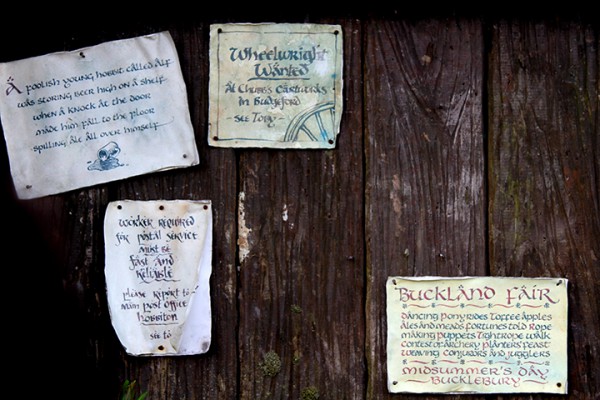 A foolish young hobbit called Alf
was storing beer high on a shelf
when a knock at the door
made him fall to the floor
spilling ale all over himself
Wheelwright
Wanted
At Chubbs Cartworks
in Budgeford
- See Toby -
Worker required
for postal service
must be
fast and
reliable
please report to
main post office
Hobbiton
Buckland Fair
Dancing Pony rides Toffee apples
Ales and meads fortunes told Rope
making Puppets Tightrope walk
contest of archery Planters' feast
weaving conjurors and jugglers
Midsummer's Day
Bucklebury